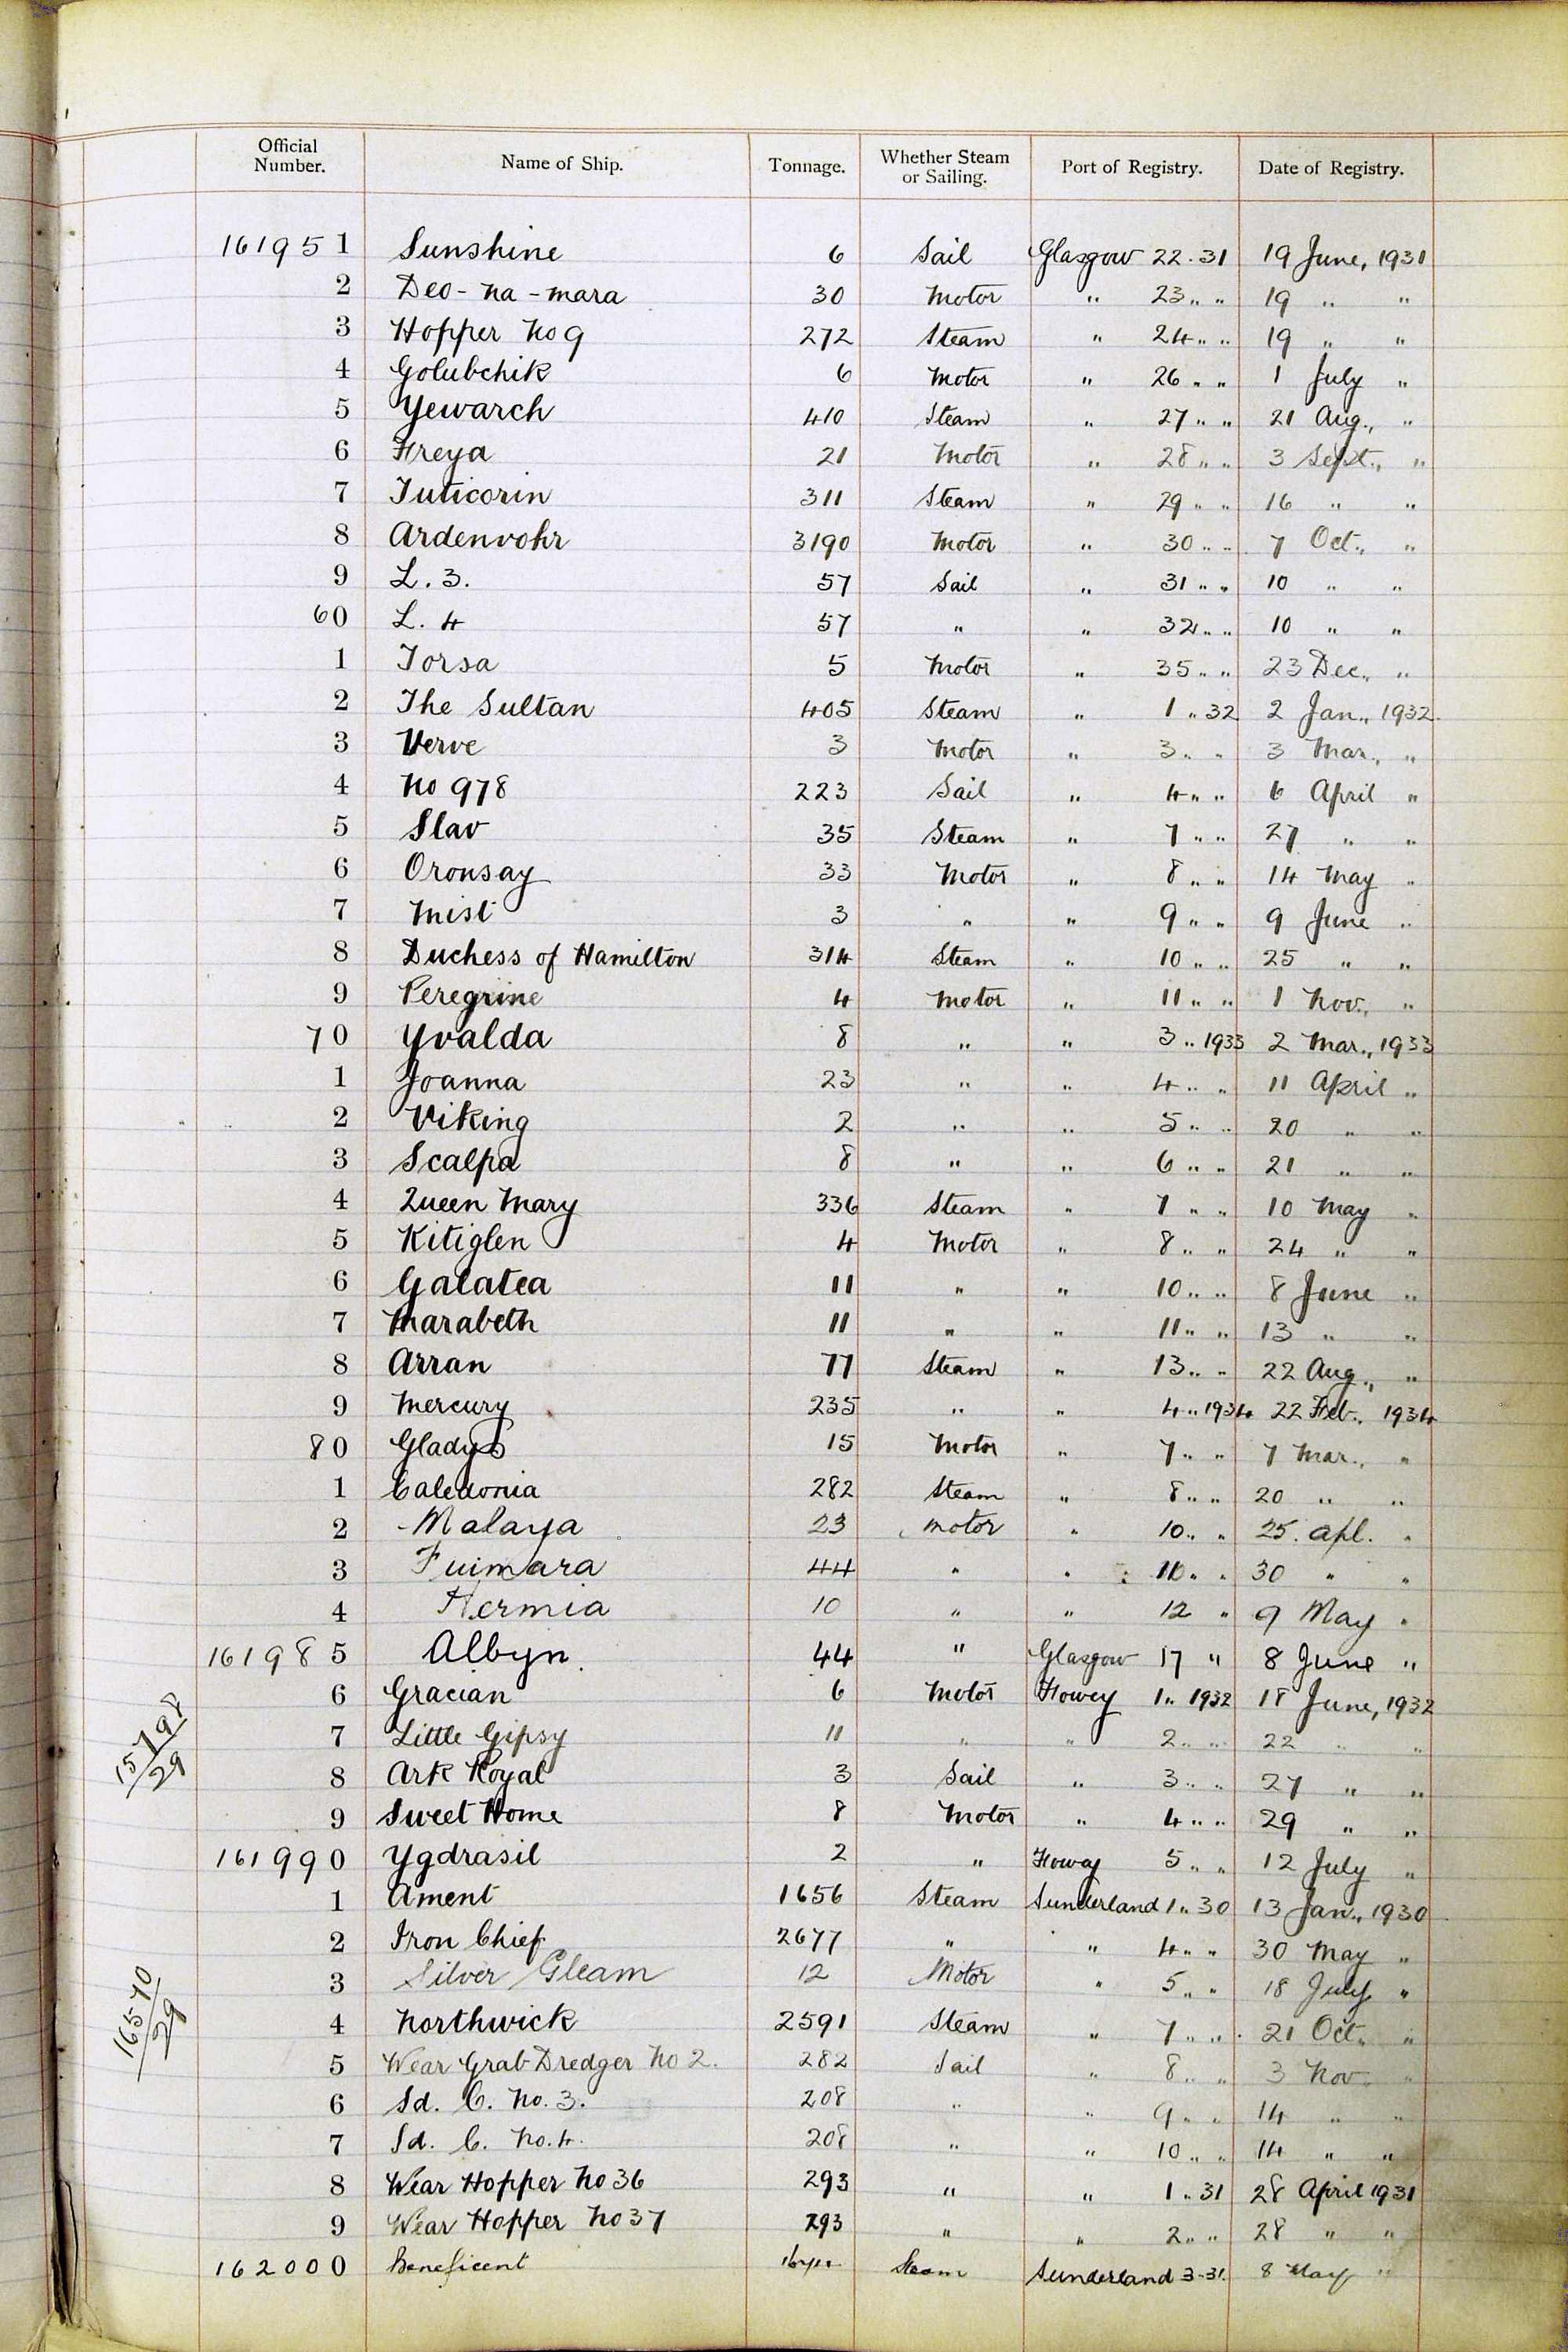 Official Number. Name of Ship. Tonnage. Whether Steam or Sailing. Port of Registry. Date of Registry.
161951 Sunshine 6 Sail Glasgow 22.31 19 June, 1931
2 Deo-na-mara 30 Motor " 23 " " 19 " "
3 Hopper No 9 272 Steam " 24 " " 19 " "
4 Golubchik 6 Motor " 26 " " 1 July "
5 Yewarch 410 Steam " 27 " " 21 Aug., "
6 Freya 21 Motor " 28 " " 3 Sept., "
7 Tuticorin 311 Steam " 29 " " 16 " "
8 Ardenvohr 3190 Motor " 30 " " 7 Oct., "
9 L. 3. 57 Sail " 31 " " 10 " "
60 L. 4 57 " " 32 " " 10 " "
1 Torsa 5 Motor " 35 " " 23 Dec., "
2 The Sultan 405 Steam " 1 " 32 2 Jan., 1932.
3 Verve 3 Motor " 3 " " 3 Mar., "
4 No 978 223 Sail " 4 " " 6 April "
5 Slav 35 Steam " 7 " " 27 " "
6 Oronsay 33 Motor " 8 " " 14 May "
7 Mist 3 " " 9 " " 9 June "
8 Duchess of Hamilton 314 Steam " 10 " " 25 " "
9 Peregrine 4 Motor " 11 " " 1 Nov., "
70 Yvalda 8 " " 3 " 1933 2 Mar., 1933
1 Joanna 23 " " 4 " " 11 April "
2 Viking 2 " " 5 " " 20 " "
3 Scalpa 8 " " 6 " " 21 " "
4 Queen Mary 336 Steam " 7 " " 10 May "
5 Kitiglen 4 Motor " 8 " " 24 " "
6 Galatea 11 " " 10 " " 8 June "
7 Marabeth 11 " " 11 " " 13 " "
8 Arran 77 Steam " 13 " " 22 Aug., "
9 Mercury 235 " " 4 " 1934 22 Feb., 1934
80 Gladys 15 Motor " 7 " " 7 Mar., "
1 Caledonia 282 Steam " 8 " " 20 " "
2 Malaya 23 Motor " 10 " " 25. Apl. "
3 Fuimara 44 " " " " 30 " "
4 Hermia 10 " " 12 " 9 May "
161985 Albyn. 44 " Glasgow 17 " 8 June "
6 Gracian 6 Motor Fowey 1 " 1932 18 June, 1932
7 Little Gipsy 11 " " 2 " " 22 " "
15798/29
8 Ark Royal 3 Sail " 3 " " 27 " "
9 Sweet Home 8 Motor " 4 " " 29 " "
161990 Ygdrasil 2 " Fowey 5 " " 12 July "
1 Ament 1656 Steam Sunderland 1 " 30 13 Jan., 1930
2 Iron Chief 2677 " " 4 " " 30 May "
3 Silver Gleam 12 Motor " 5 " " 18 July "
16570/29
4 Northwick 2591 Steam " 7 " " 21 Oct. "
5 Wear Grab Dredger No 2. 282 Sail " 8 " " 3 Nov. "
6 Sd. C. No. 3. 208 " " 9 " " 14 " "
7 Sd. C. No. 4. 208 " " 10 " " 14 " "
8 Wear Hopper No 36 293 " " 1 " 31 28 April 1931
9 Wear Hopper No 37 293 " " 2 " " 28 " "
162000 Beneficent Steam Sunderland 3-31. 8 May "